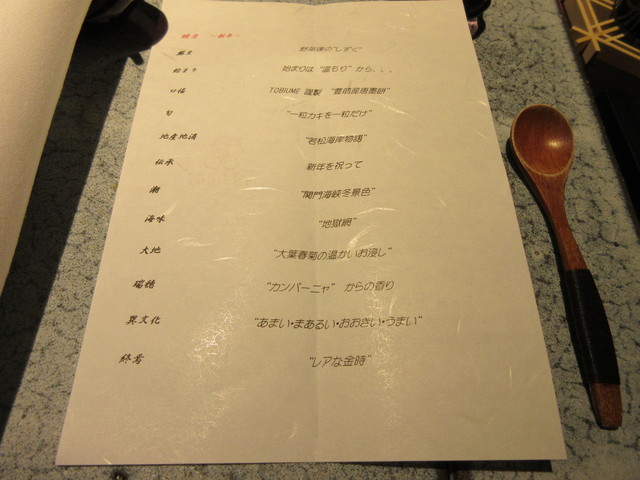 野菜達の"しずく"
始まり 始まりは "温もり" から、、、
口福 TOBIUME 謹製 
旬 "一粒カキを一粒だけ"
地産地消 "若松海岸物語"
伝承 新年を祝って
潮 "関門海峡冬景色"
海味 "地獄網"
大地 "大葉春菊の温かいお浸し"
瑞穂 "カンパーニャ" からの香り
異文化 "あまい・まあるい・おおきい・うまい"
終焉 "レアな金時"